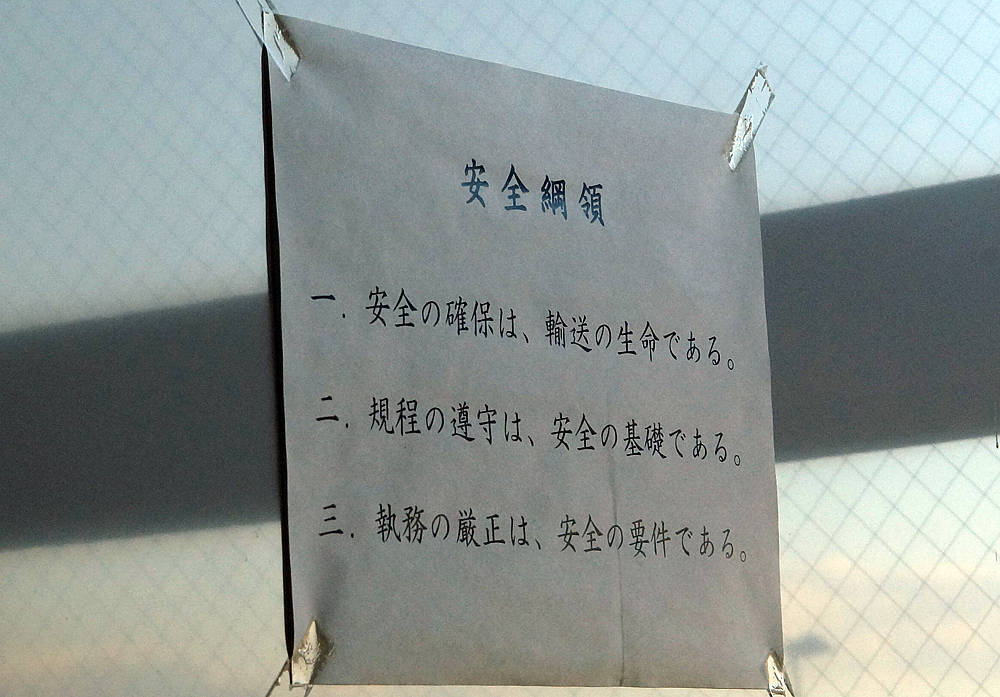 安全綱領
一．安全の確保は、輸送の生命である。
二．規程の遵守は、安全の基礎である。
三．執務の厳正は、安全の要件である。